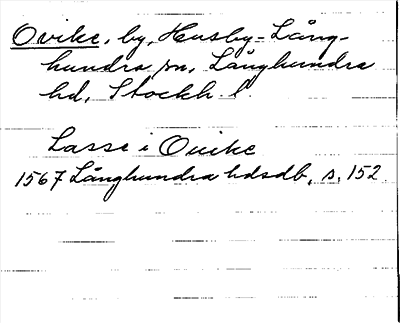 Ovike, by, Husby-Lång-
hundra sn, Långhundra
hd, Stockh. l.
Lasse i Ovike
1567 Långhundra hdsdb, s. 152.